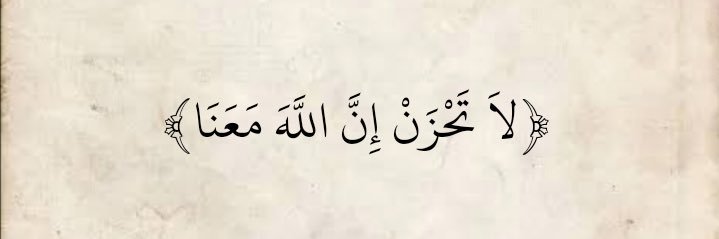 ﴿لاَ تَحْزَنْ إِنَّ اللَّهَ مَعَنَا﴾